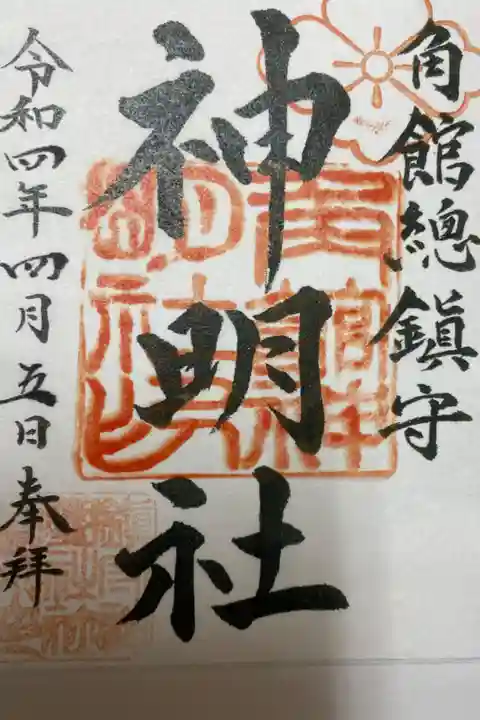 角館總鎮守
神明社
令和四年四月五日奉拜